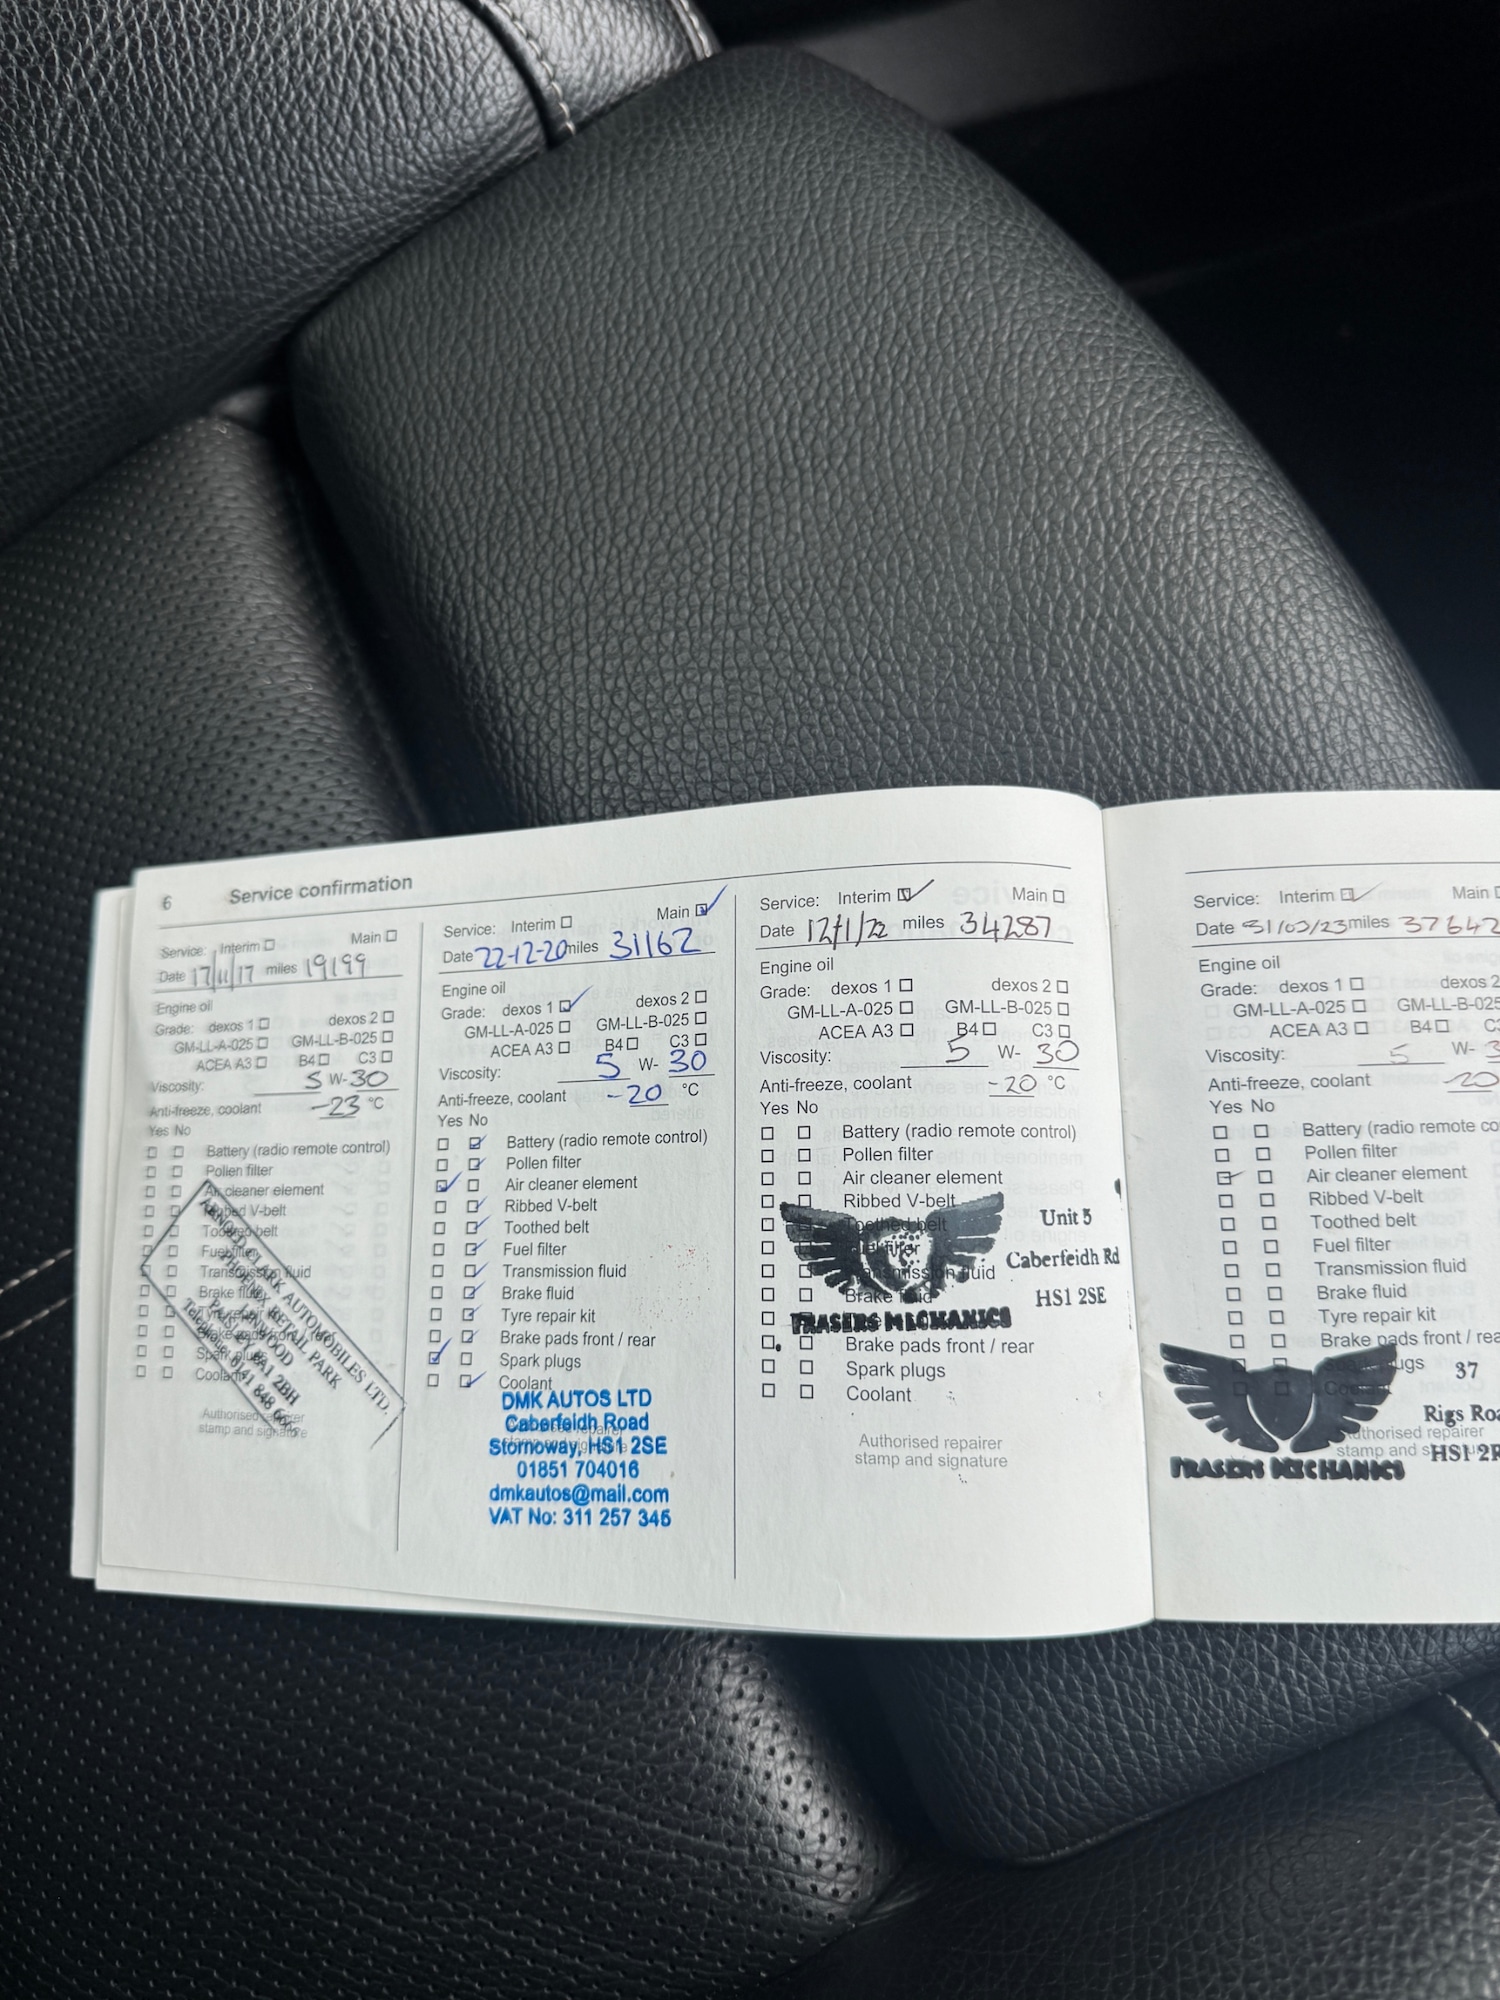 6 Service confirmation
Service: Interim Main
Date 17/11/17 miles 19199
Engine oil
Grade: dexos 1 dexos 2
GM-LL-A-025 GM-LL-B-025
ACEA A3 B4 C3
Viscosity: 5 W-30
Anti-freeze, coolant -23 °C
Yes No
Battery (radio remote control)
Pollen filter
Air cleaner element
Ribbed V-belt
Toothed belt
Fuel filter
Transmission fluid
Brake fluid
Tyre repair kit
Brake pads front / rear
Spark plugs
Coolant
ARNOLD CLARK AUTOMOBILES LTD.
PHOENIX RETAIL PARK
LINWOOD
PAISLEY PA1 2BH
Telephone: 0141 848
Authorised repairer
stamp and signature
Service: Interim Main
Date 22-12-20 miles 31162
Engine oil
Grade: dexos 1 dexos 2
GM-LL-A-025 GM-LL-B-025
ACEA A3 B4 C3
Viscosity: 5 W- 30
Anti-freeze, coolant -20 °C
Yes No
Battery (radio remote control)
Pollen filter
Air cleaner element
Ribbed V-belt
Toothed belt
Fuel filter
Transmission fluid
Brake fluid
Tyre repair kit
Brake pads front / rear
Spark plugs
Coolant
DMK AUTOS LTD
Caberfeidh Road
Stornoway, HS1 2SE
01851 704016
dmkautos@mail.com
VAT No: 311 257 346
Service: Interim Main
Date 12/1/22 miles 34287
Engine oil
Grade: dexos 1 dexos 2
GM-LL-A-025 GM-LL-B-025
ACEA A3 B4 C3
Viscosity: 5 W- 30
Anti-freeze, coolant -20 °C
Yes No
Battery (radio remote control)
Pollen filter
Air cleaner element
Ribbed V-belt
Toothed belt
Fuel filter
Transmission fluid
Brake fluid
Brake pads front / rear
Spark plugs
Coolant
FRASERS MECHANICS
Unit 5
Caberfeidh Rd
HS1 2SE
Authorised repairer
stamp and signature
Service: Interim Main
Date 31/03/23 miles 37642
Engine oil
Grade: dexos 1 dexos 2
GM-LL-A-025 GM-LL-B-025
ACEA A3 B4 C3
Viscosity: 5 W- 3
Anti-freeze, coolant -20
Yes No
Battery (radio remote co
Pollen filter
Air cleaner element
Ribbed V-belt
Toothed belt
Fuel filter
Transmission fluid
Brake fluid
Tyre repair kit
Brake pads front / rea
Spark plugs
Coolant
37
Rigs Roa
HS1 2R
FRASERS MECHANICS
Authorised repairer
stamp and signature